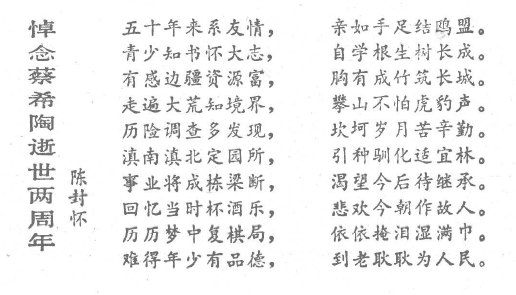 悼念蔡希陶逝世两周年
陈封怀
五十年来系友情，亲如手足结鸥盟。
青少知书怀大志，自学根生树长成。
有感边疆资源富，胸有成竹筑长城。
走遍大荒知境界，攀山不怕虎豹声。
历险调查多发现，坎坷岁月苦辛勤。
滇南滇北定园所，引种驯化适宜林。
事业将成栋梁断，渴望今后待继承。
回忆当时杯酒乐，悲欢今朝作故人。
历历梦中复棋局，依依掩泪湿满巾。
难得年少有品德，到老耿耿为人民。